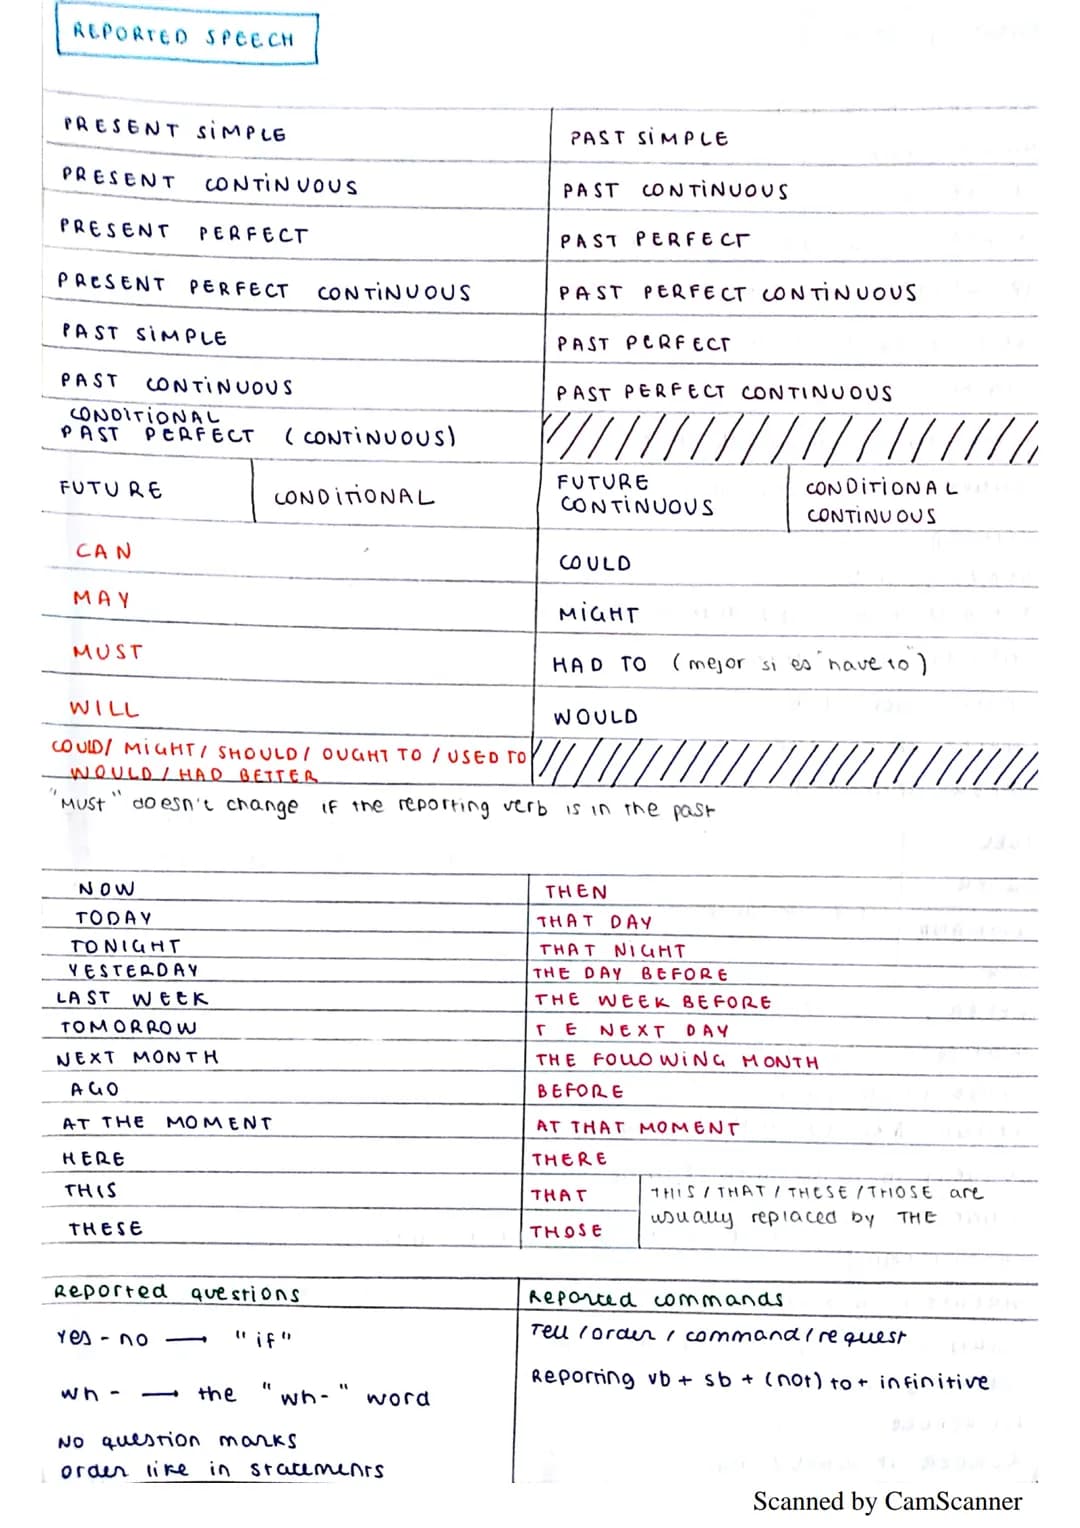 REPORTED SPEECH
PRESENT SIMPLE PAST SIMPLE
PRESENT CONTINUOUS PAST CONTINUOUS
PRESENT PERFECT PAST PERFECT
PRESENT PERFECT CONTINUOUS PAST PERFECT CONTINUOUS
PAST SIMPLE PAST PERFECT
PAST CONTINUOUS PAST PERFECT CONTINUOUS
CONDITIONAL
PAST PERFECT (CONTINUOUS)
FUTURE CONDITIONAL FUTURE CONTINUOUS CONDITIONAL CONTINUOUS
CAN COULD
MAY MIGHT
MUST HAD TO (mejor si es "have to")
WILL WOULD
COULD/ MIGHT/ SHOULD/ OUGHT TO / USED TO
WOULD / HAD BETTER
"MUST" doesn't change if the reporting verb is in the past
NOW THEN
TODAY THAT DAY
TONIGHT THAT NIGHT
YESTERDAY THE DAY BEFORE
LAST WEEK THE WEEK BEFORE
TOMORROW T E NEXT DAY
NEXT MONTH THE FOLLOWING MONTH
AGO BEFORE
AT THE MOMENT AT THAT MOMENT
HERE THERE
THIS THAT THIS / THAT / THESE / THOSE are
THESE THOSE usually replaced by THE
Reported questions Reported commands
Yes - no → "if" Tell / order / command / request
wh - → the "wh-" word Reporting vb + sb + (not) to + infinitive
No question marks
order like in statements
Scanned by CamScanner